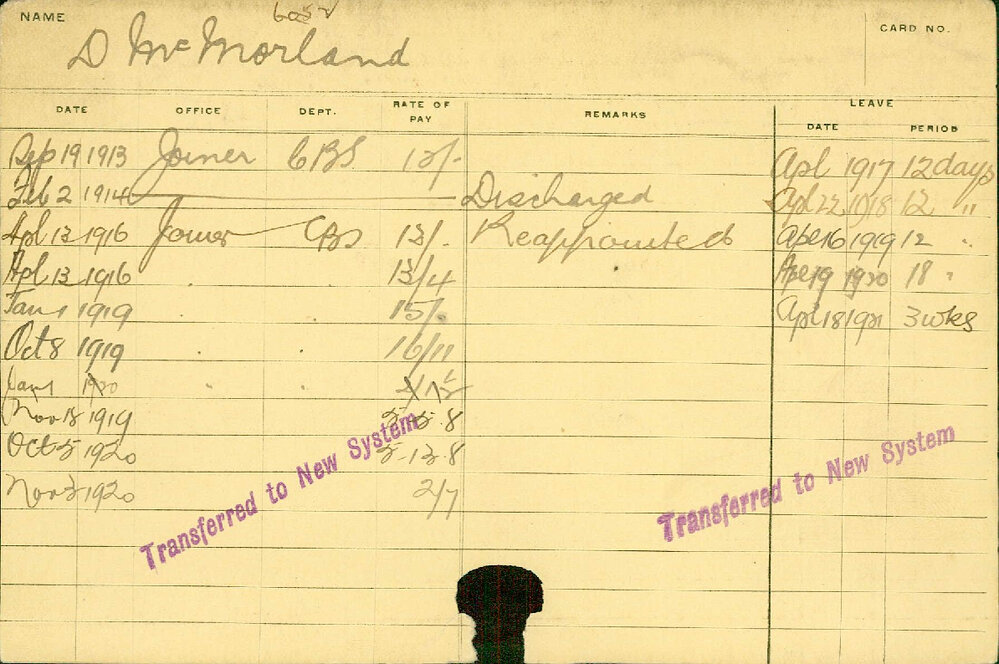 NAME 6052 CARD NO.
D McMorland
DATE OFFICE DEPT. RATE OF PAY REMARKS LEAVE
DATE PERIOD
Sep 19 1913 Joiner CBS 12/- Apl 1917 12 days
Feb 2 1914 Discharged Apl 22 1918 12 "
Apl 12 1916 Joiner CBS 13/- Reappointed Apl 16 1919 12 "
Apl 13 1916 13/4 Apl 19 1920 18 "
Jan 1 1919 15/- Apl 18 1921 3 wks
Oct 8 1919 16/11
Jan 1 1920
Nov 18 1919 5-5-8
Oct 5 1920 5-12-8
Nov 3 1920 2/7
Transferred to New System
Transferred to New System